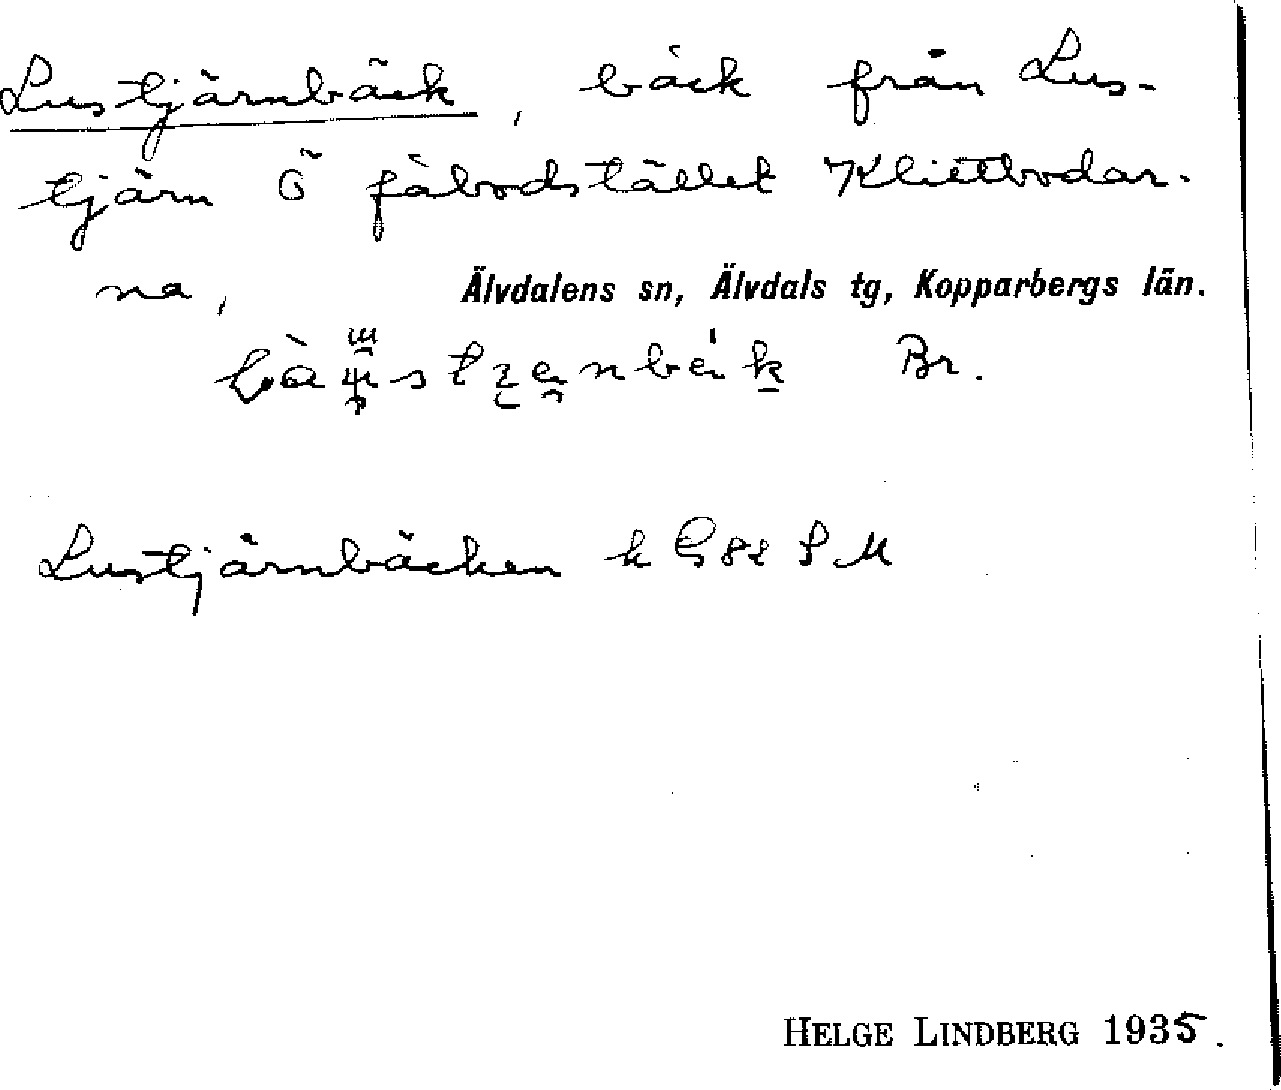 Lustjärnbäck, bäck från Lus-
tjärn Ö fäbodstället Klittbodar-
na, Älvdalens sn, Älvdals tg, Kopparbergs län.
Br.
Lustjärnbäcken k G82 SM
HELGE LINDBERG 1935.